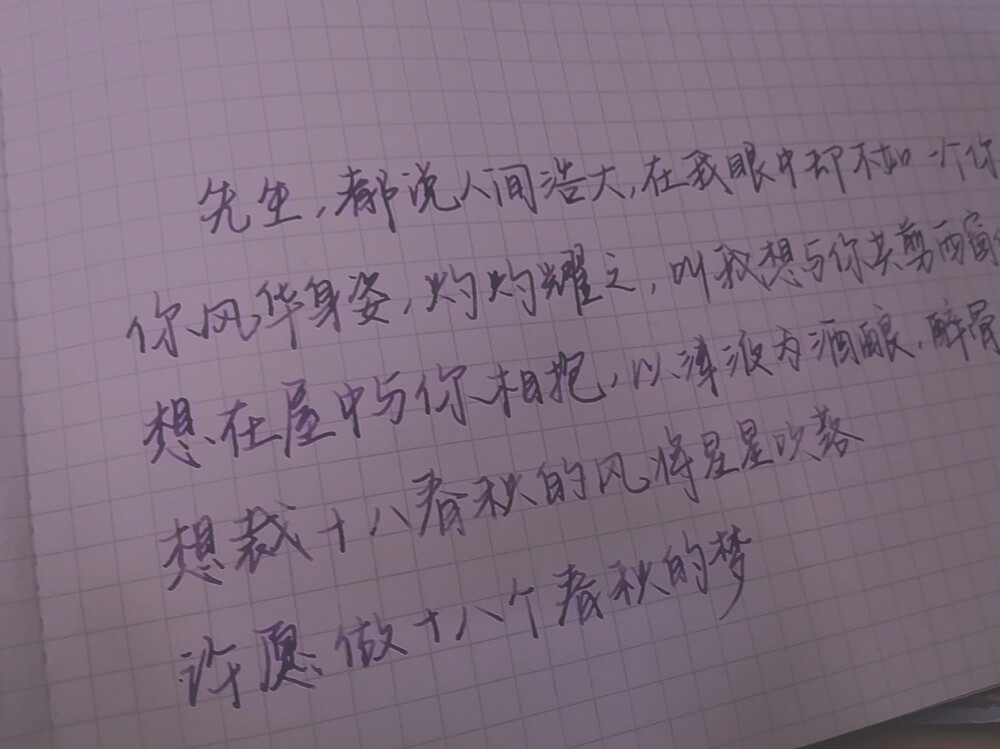 先生,都说人间浩大,在我眼中却不如一个你
你风华身姿,灼灼耀之,叫我想与你共剪西窗
想在屋中与你相抱,以津液为酒酿,醉骨
想裁十八春秋的风将星星吹落
许愿做十八个春秋的梦